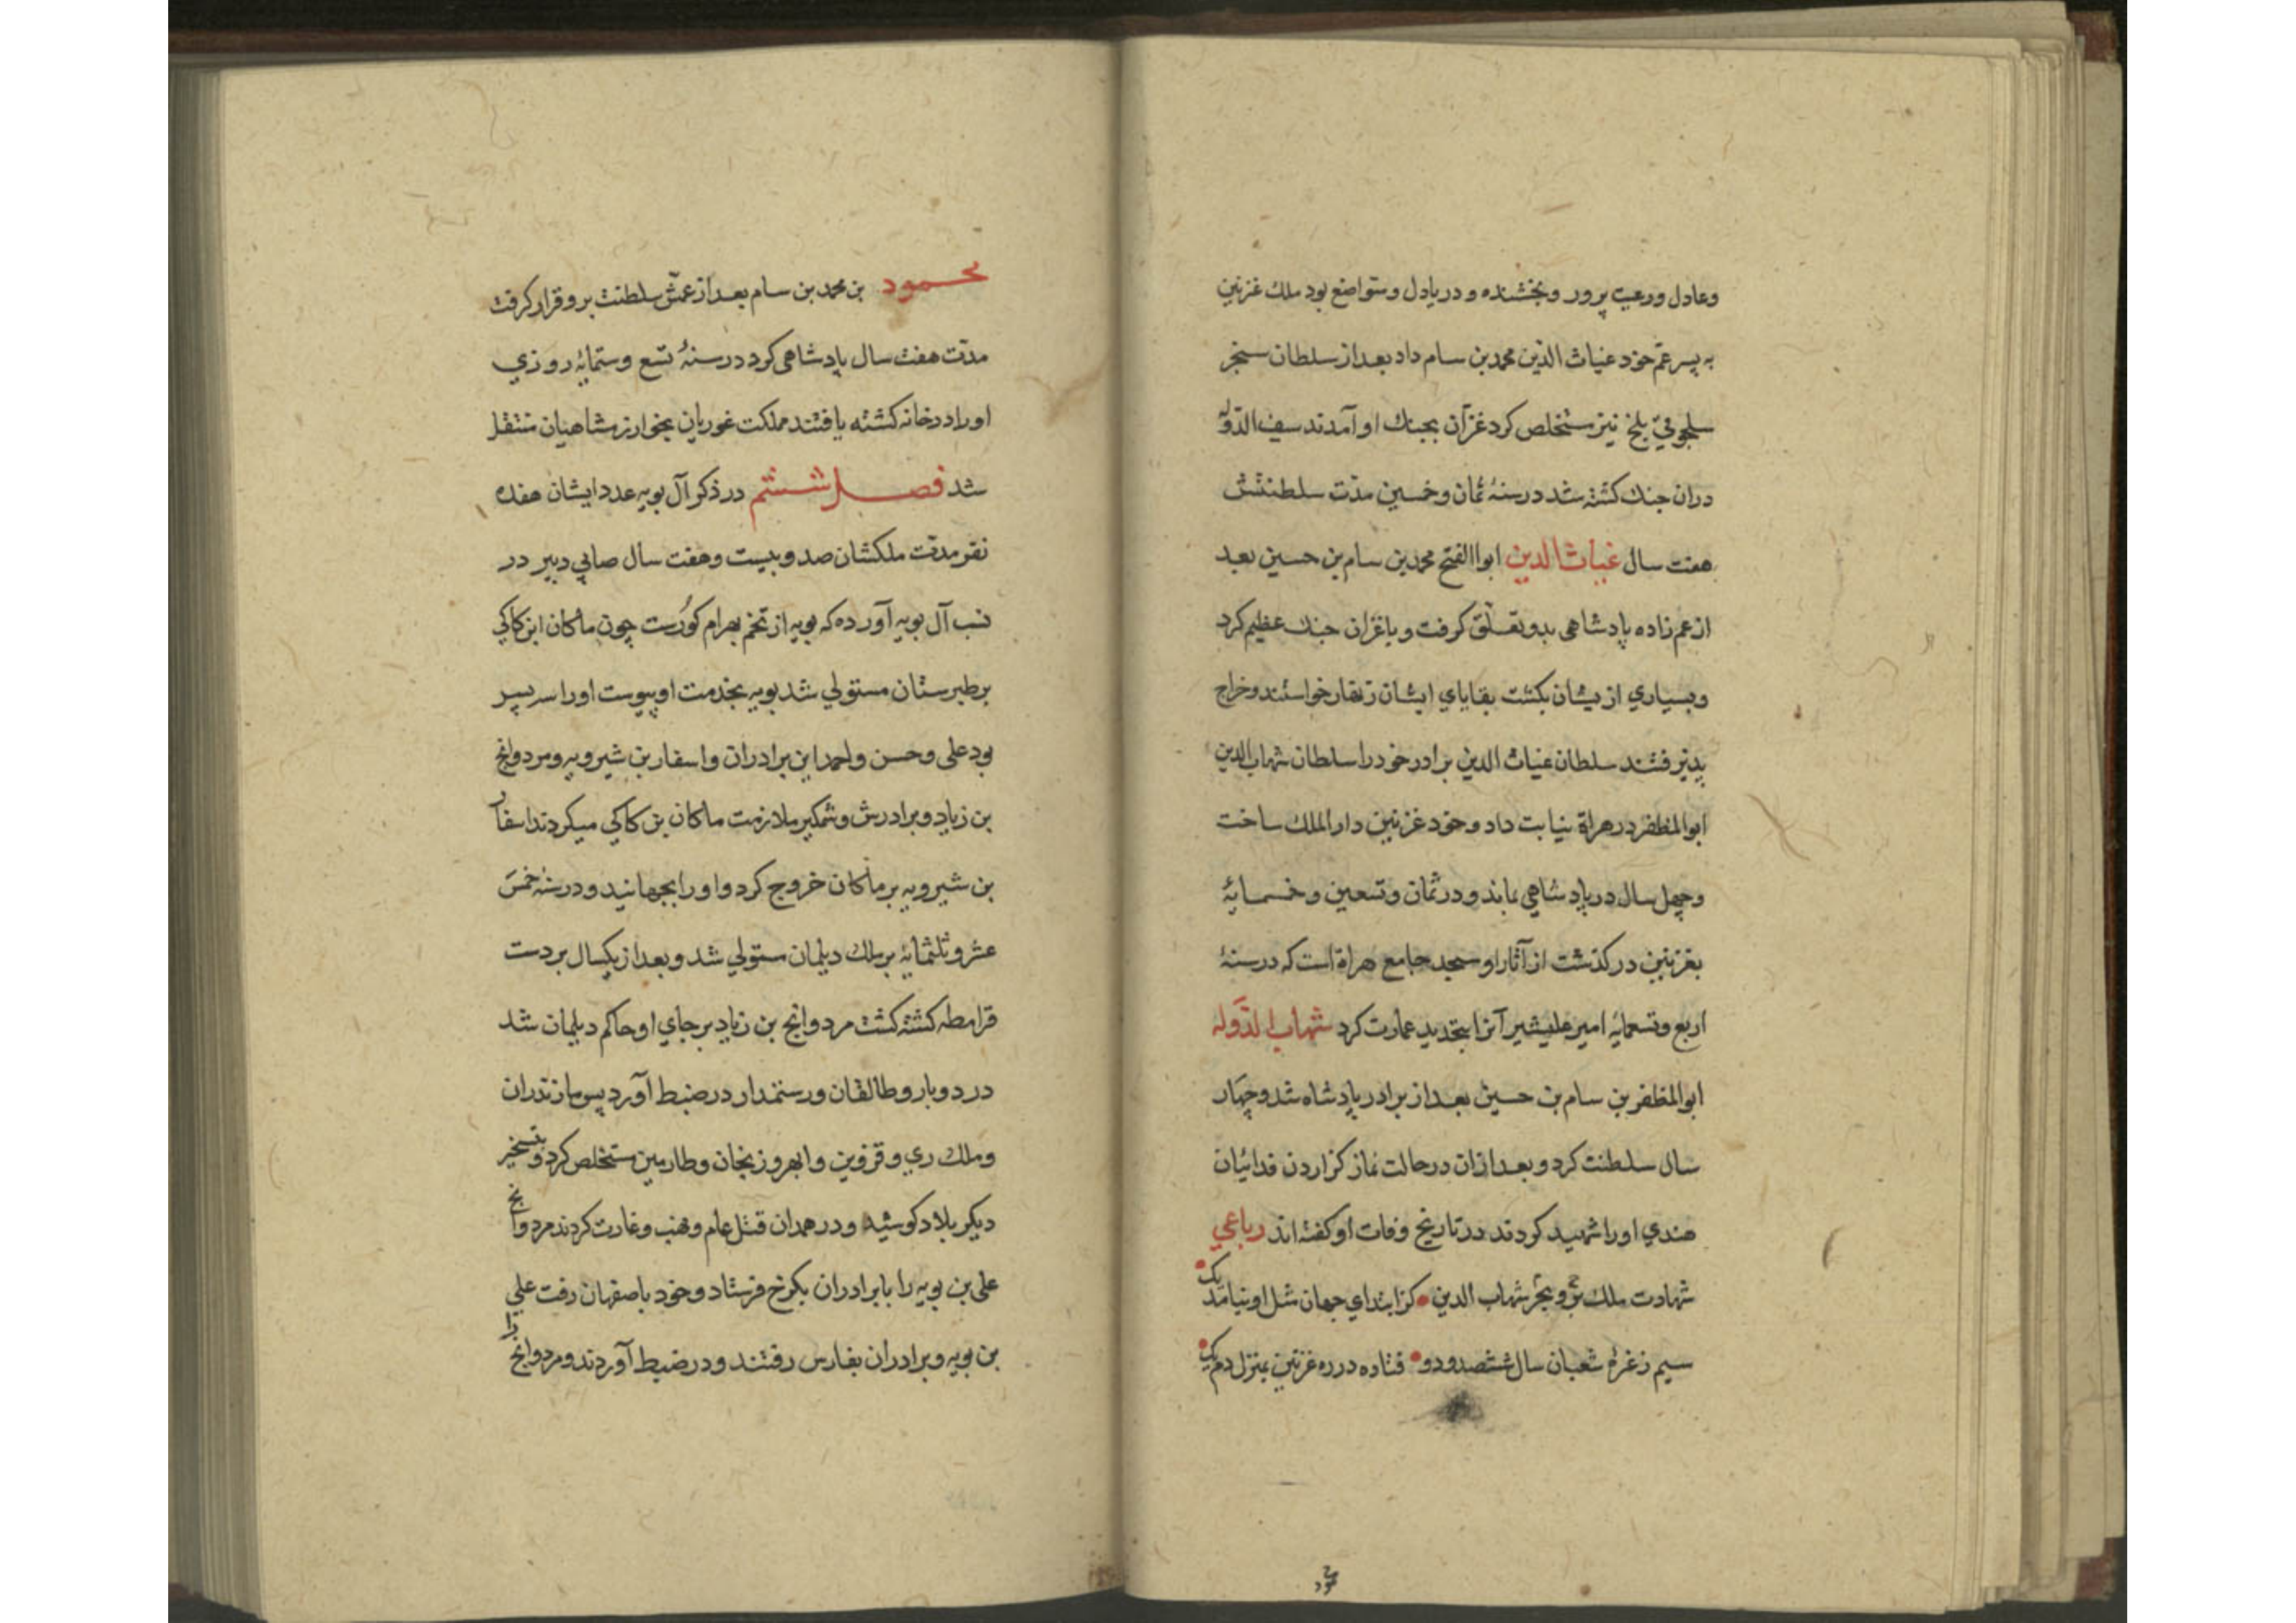 وعادل ورعیت پرور وبخشنده و دریادل ومتواضع بود ملك غزنین
به پسر عم خود غیاث الدّین محمد بن سام داد بعد از سلطان سنجر
سلجوقيّ بلخ نیز مستخلص کرد غزّان بجنك او آمدند سیف الدّوله
دران جنك کشته شد در سنهٔ ثمان وخمسین مدّت سلطنتش
هفت سال غیاث الدین ابوا الفتح محمد بن سام بن حسین بعد
از عم زاده پادشاهی بدو تعلّق کرفت و با غزان جنك عظیم کرد
وبسیاري از یشان بکشت بقایاي ایشان زنهار خواستند وخراج
پذیرفتند سلطان غیاث الدین برادر خود را سلطان شهاب الدین
ابوالمظفر در هراة نیابت داد وخود غزنین دار الملك ساخت
وچهل سال در پادشاهي بماند و در ثمان وتسعین وخمسمایهٔ
بغزنین در کذشت از آثار او مسجد جامع هراة است که در سنهٔ
اربع وتسعمایه امیر علیشیر آنرا بتجدید عمارت کرد شهاب الدّوله
ابوالمظفر بن سام بن حسین بعد از برادر پادشاه شد وچهار
سال سلطنت کرد و بعد ازان در حالت نماز کزاردن فدائیان
هندي اورا شهید کردند در تاریخ وفات او کفته اند رباعي
شهادت ملك بحر و بر شهاب الدین کز ابتداي جهان مثل او نیامد یك
سیم ز غرهٔ شعبان سال ششصد و دو فتاده در ره غزنین بمنزل دمیك
محمود بن محمد بن سام بعد از عمّش سلطنت برو قرار کرفت
مدّت هفت سال پادشاهی کرد در سنهٔ تسع وستمایهٔ روزي
اورا در خانه کشته یافتند مملکت غوریان بخوارزمشاهیان منتقل
شد فصل ششم در ذکر آل بویه عدد ایشان هفده
نفر مدّت ملکشان صد و بیست وهفت سال صابي دبیر در
نسب آل بویه آورده که بویه از تخم بهرام کورست چون ماکان ابن کاکي
بر طبرستان مستولي شد بویه بخدمت او پیوست اورا سه پسر
بود علی وحسن واحمد این برادران واسفار بن شیرویه ومرداویج
بن زیاد وبرادرش وشمکیر ملازمت ماکان بن کاکي میکردند اسفار
بن شیرویه بر ماکان خروج کرد واورا بجهانید و در سنه خمس
عشر وثلثمایهٔ بر ملك دیلمان مستولي شد و بعد از یکسال بر دست
قرامطه کشته کشت مردوایج بن زیاد بر جاي او حاکم دیلمان شد
در دوبار وطالقان ورستمدار در ضبط آورد پس مازندران
وملك ري وقزوین وابهر وزنجان وطارمین مستخلص کرد و بتسخیر
دیکر بلاد کوشید و در همدان قتل عام ونهب وغارت کردند مردوایج
علی بن بویه را با برادران بکرخ فرستاد وخود باصفهان رفت علي
بن بویه وبرادران بفارس رفتند ودر ضبط آوردند ومردوایج را